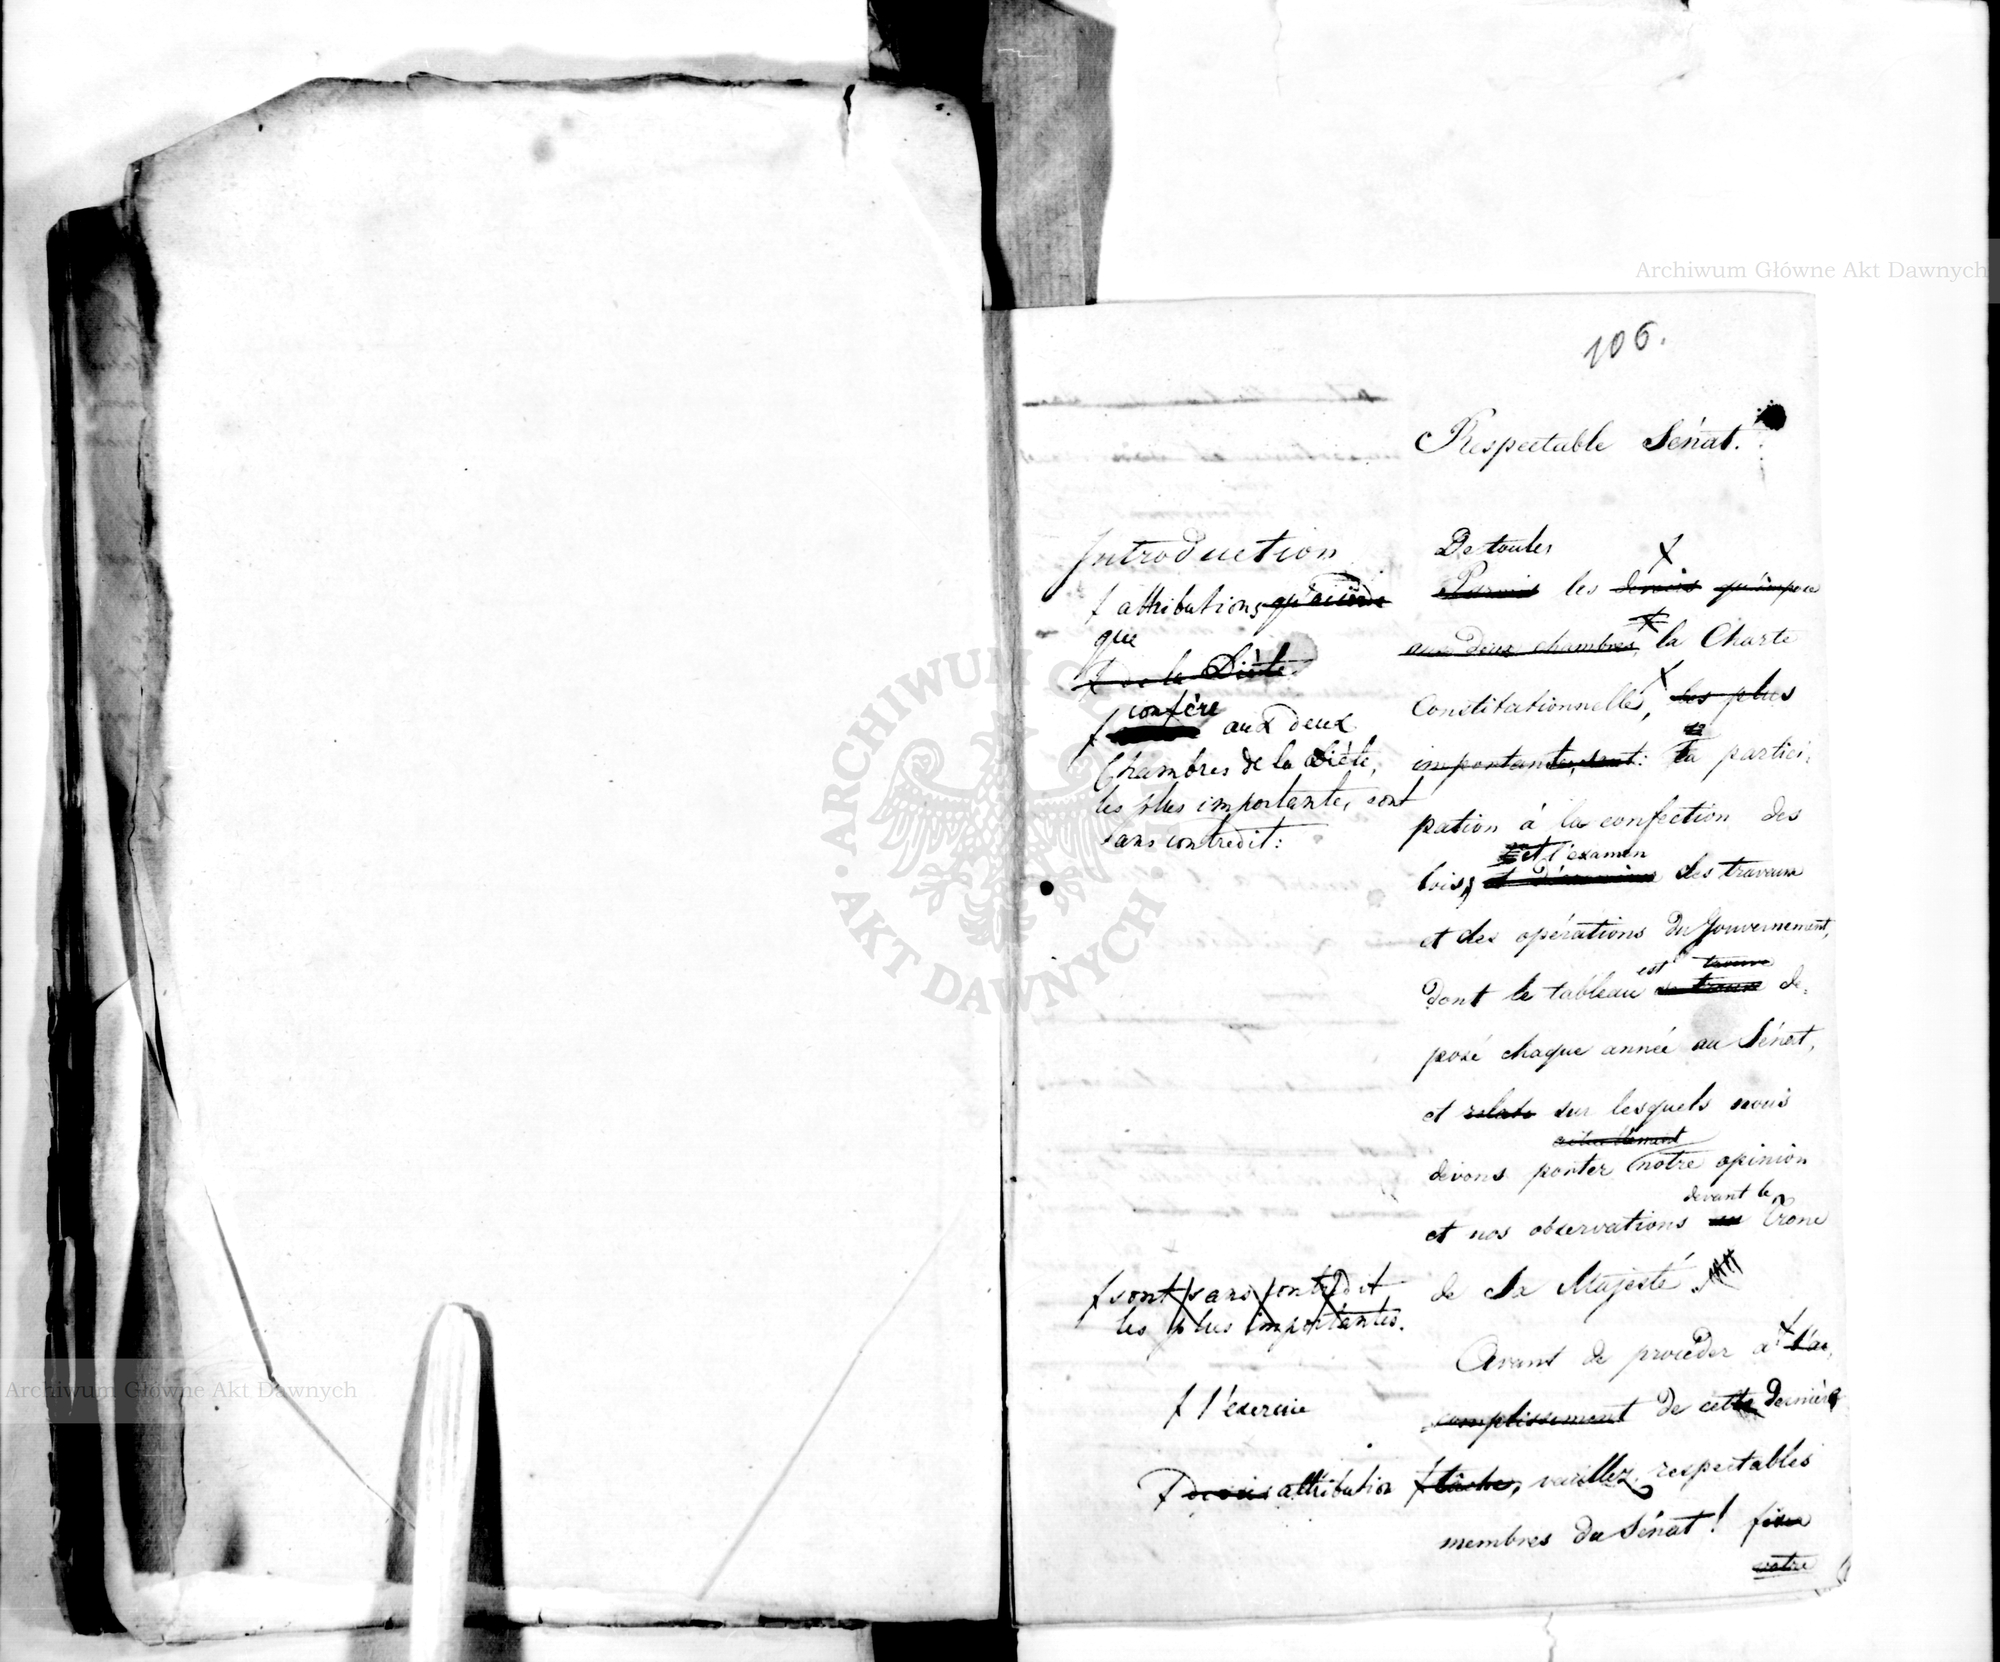 106.
Respectable Sénat.
Introduction
ƒ attributions qu'accorde
que
ƒ de la Diète
confère
ƒ aux deux
Chambres de la Diète,
les plus importantes, sont
sans contredit:
De toutes
Parmi les devoirs qu'impose
aux deux chambres, la Charte
Constitutionnelle, les plus
importantes, sont: la partici-
pation à la confection des
et l'examen
lois, des travaux
et des opérations du Gouvernement,
est trouve
dont le tableau se trouve dé-
posé chaque année au Sénat,
et sur lesquels nous
actuellement
devons porter notre opinion
devant le
et nos observations au Trone
de Sa Majesté.
ƒ sont sans contredit
les plus importantes.
Avant de procéder à l'ac-
ƒ l'exercice
complissement de cette dernière
ƒ devoir attribution
ƒ tâche, veuillez, respectables
membres du Sénat! fixer
votre
Archiwum Główne Akt Dawnych
Archiwum Główne Akt Dawnych
ARCHIWUM GŁÓWNE AKT DAWNYCH